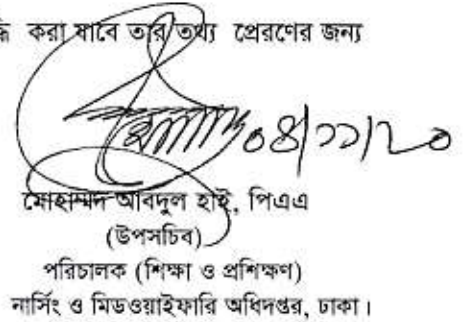 দ্ধি করা যাবে তার তথ্য প্রেরণের জন্য
০৪/১১/২০
মোহাম্মদ আবদুল হাই, পিএএ
(উপসচিব)
পরিচালক (শিক্ষা ও প্রশিক্ষণ)
নার্সিং ও মিডওয়াইফারি অধিদপ্তর, ঢাকা।